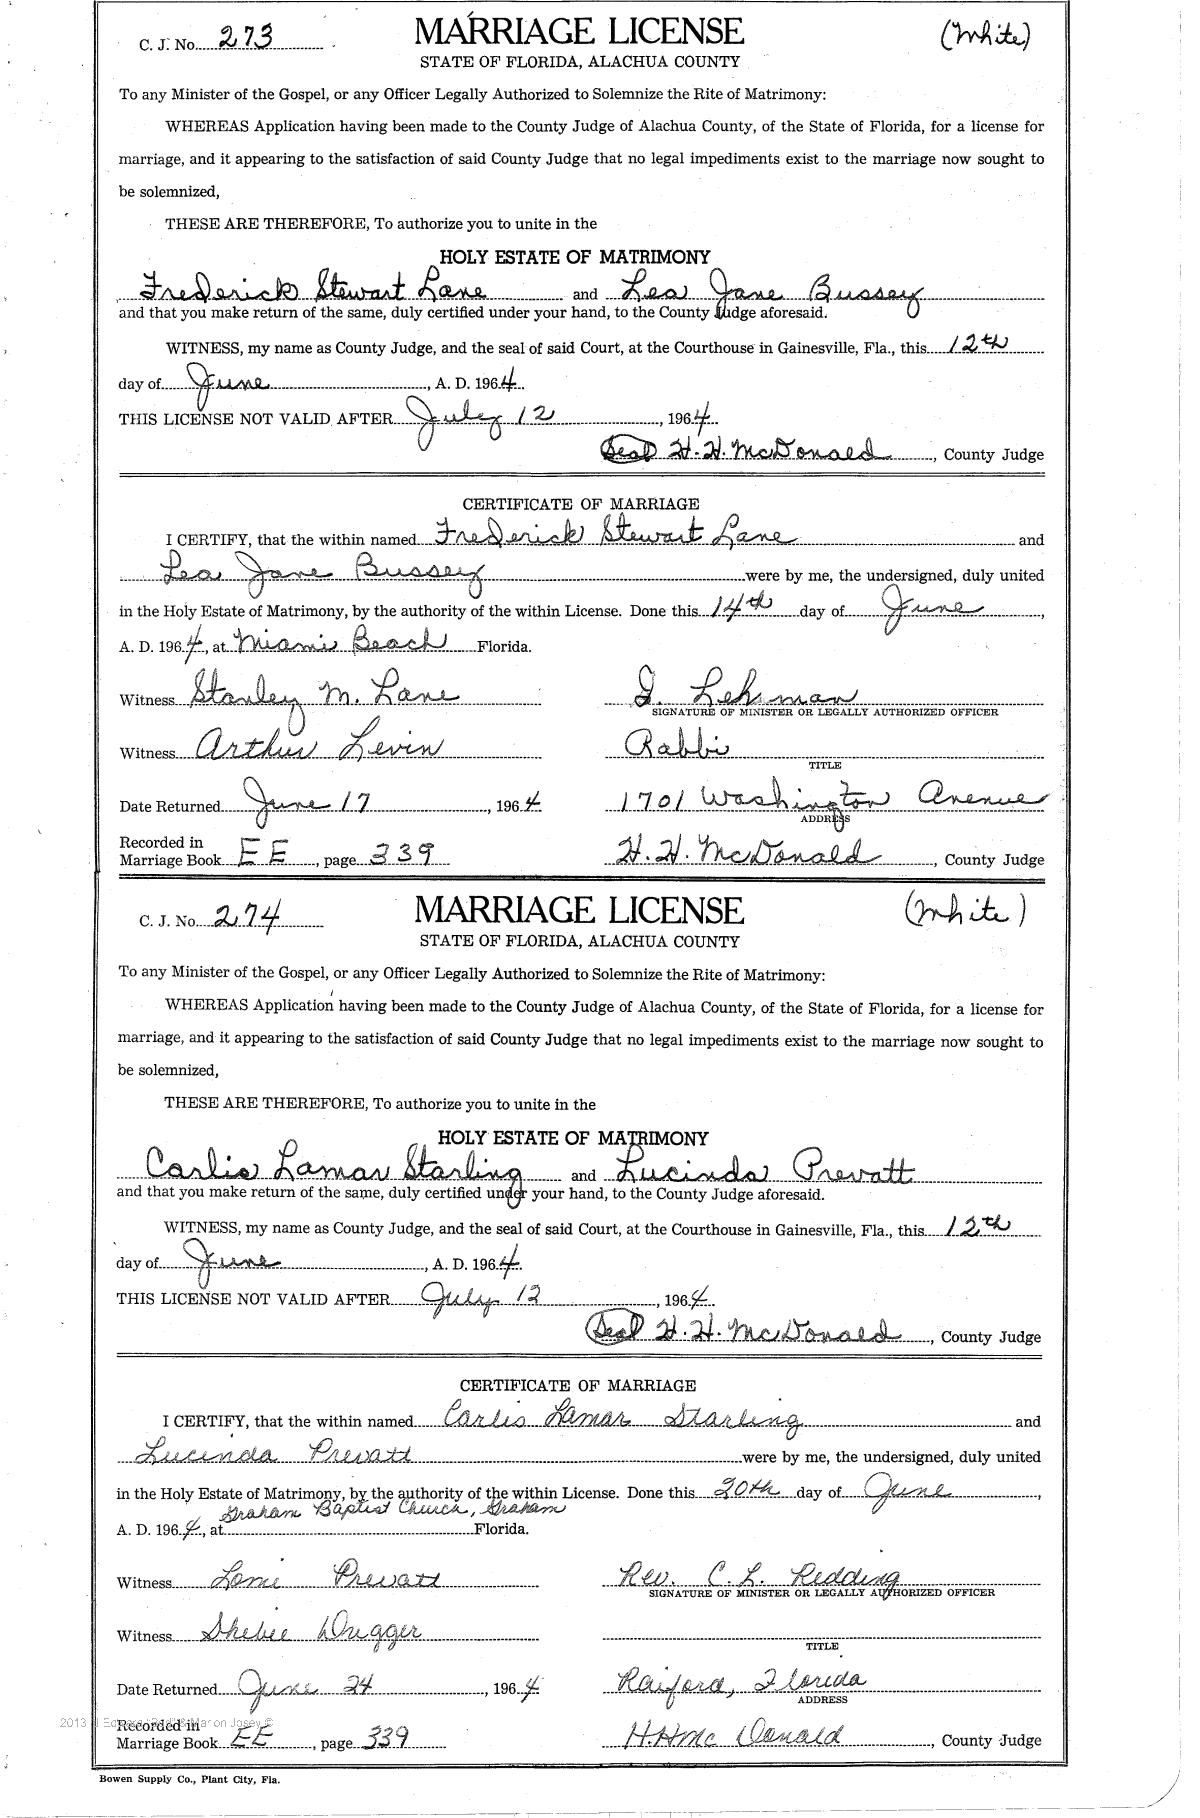 C. J. No. 273 MARRIAGE LICENSE (White)
STATE OF FLORIDA, ALACHUA COUNTY
To any Minister of the Gospel, or any Officer Legally Authorized to Solemnize the Rite of Matrimony:
WHEREAS Application having been made to the County Judge of Alachua County, of the State of Florida, for a license for
marriage, and it appearing to the satisfaction of said County Judge that no legal impediments exist to the marriage now sought to
be solemnized,
THESE ARE THEREFORE, To authorize you to unite in the
HOLY ESTATE OF MATRIMONY
Frederick Stewart Lane and Lea Jane Bussey
and that you make return of the same, duly certified under your hand, to the County Judge aforesaid.
WITNESS, my name as County Judge, and the seal of said Court, at the Courthouse in Gainesville, Fla., this 12th
day of June, A. D. 1964.
THIS LICENSE NOT VALID AFTER July 12, 1964.
Seal H. H. McDonald, County Judge
CERTIFICATE OF MARRIAGE
I CERTIFY, that the within named Frederick Stewart Lane and
Lea Jane Bussey were by me, the undersigned, duly united
in the Holy Estate of Matrimony, by the authority of the within License. Done this 14th day of June,
A. D. 1964, at Miami Beach Florida.
Witness Stanley M. Lane I. Lehrman
SIGNATURE OF MINISTER OR LEGALLY AUTHORIZED OFFICER
Witness Arthur Levin Rabbi
TITLE
Date Returned June 17, 1964 1701 Washington Avenue
ADDRESS
Recorded in
Marriage Book EE, page 339 H. H. McDonald, County Judge
C. J. No. 274 MARRIAGE LICENSE (White)
STATE OF FLORIDA, ALACHUA COUNTY
To any Minister of the Gospel, or any Officer Legally Authorized to Solemnize the Rite of Matrimony:
WHEREAS Application having been made to the County Judge of Alachua County, of the State of Florida, for a license for
marriage, and it appearing to the satisfaction of said County Judge that no legal impediments exist to the marriage now sought to
be solemnized,
THESE ARE THEREFORE, To authorize you to unite in the
HOLY ESTATE OF MATRIMONY
Carlis Lamar Starling and Lucinda Prevatt
and that you make return of the same, duly certified under your hand, to the County Judge aforesaid.
WITNESS, my name as County Judge, and the seal of said Court, at the Courthouse in Gainesville, Fla., this 12th
day of June, A. D. 1964.
THIS LICENSE NOT VALID AFTER July 12, 1964.
Seal H. H. McDonald, County Judge
CERTIFICATE OF MARRIAGE
I CERTIFY, that the within named Carlis Lamar Starling and
Lucinda Prevatt were by me, the undersigned, duly united
in the Holy Estate of Matrimony, by the authority of the within License. Done this 20th day of June,
Graham Baptist Church, Graham
A. D. 1964, at Florida.
Witness Prevatt Rev. C. L. Redding
SIGNATURE OF MINISTER OR LEGALLY AUTHORIZED OFFICER
Witness Dugger
TITLE
Date Returned June 24, 1964 Raiford, Florida
ADDRESS
2013
Recorded in
Marriage Book EE, page 339 H. H. McDonald, County Judge
Bowen Supply Co., Plant City, Fla.